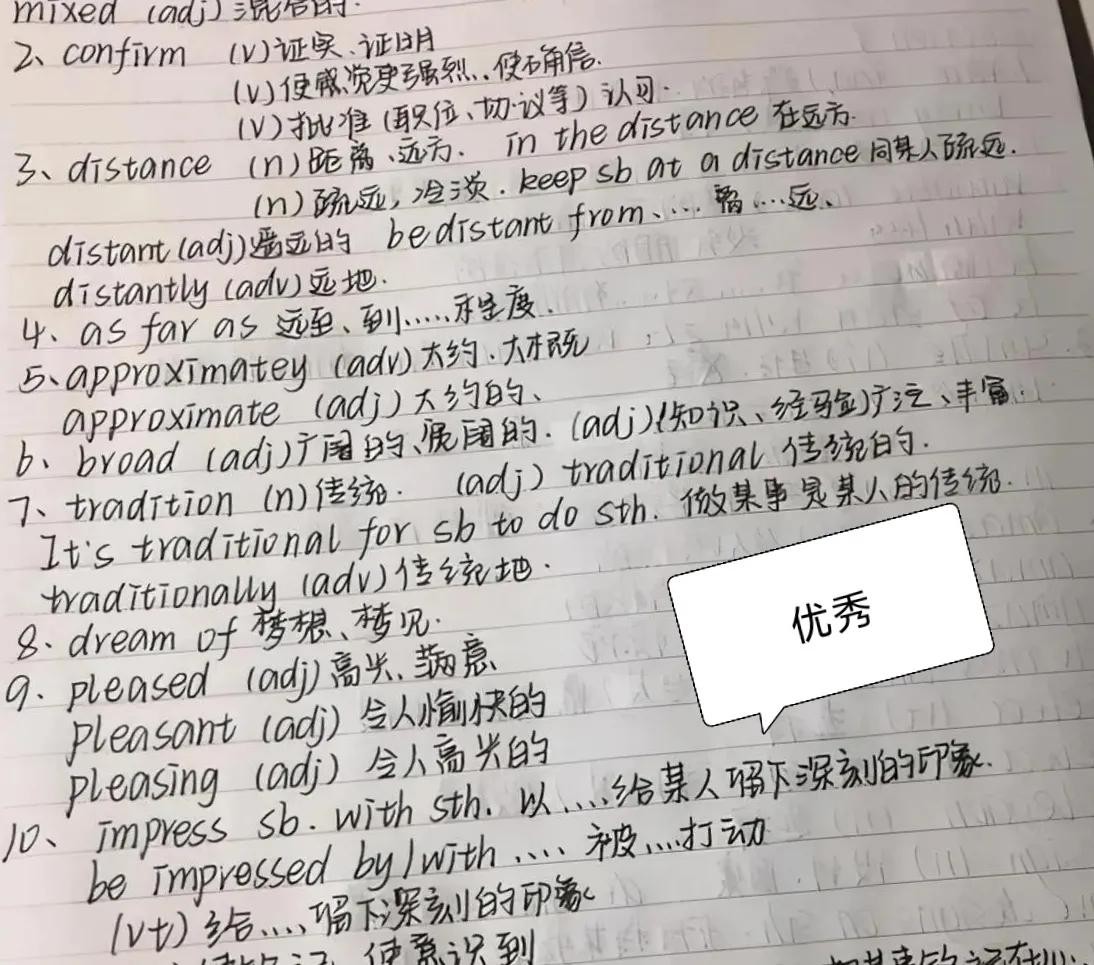 mixed (adj) 混合的.
2、confirm (v) 证实、证明
(v) 使感觉更强烈、使确信.
(v) 批准 (职位、协议等) 认可.
3、distance (n) 距离、远方. in the distance 在远方.
(n) 疏远, 冷淡. keep sb at a distance 同某人疏远.
distant (adj) 遥远的 be distant from、... 离....远、
distantly (adv) 远地.
4、as far as 远至、到.....程度.
5、approximatey (adv) 大约. 大概
approximate (adj) 大约的、
6、broad (adj) 广阔的、宽阔的. (adj) (知识、经验) 广泛、丰富.
7、tradition (n) 传统. (adj) traditional 传统的.
It's traditional for sb to do sth. 做某事是某人的传统.
traditionally (adv) 传统地.
8. dream of 梦想、梦见.
优秀
9. pleased (adj) 高兴、满意
pleasant (adj) 令人愉快的
pleasing (adj) 令人高兴的
10、impress sb. with sth. 以....给某人留下深刻的印象.
be impressed by/with .... 被....打动
(vt) 给....留下深刻的印象
使意识到